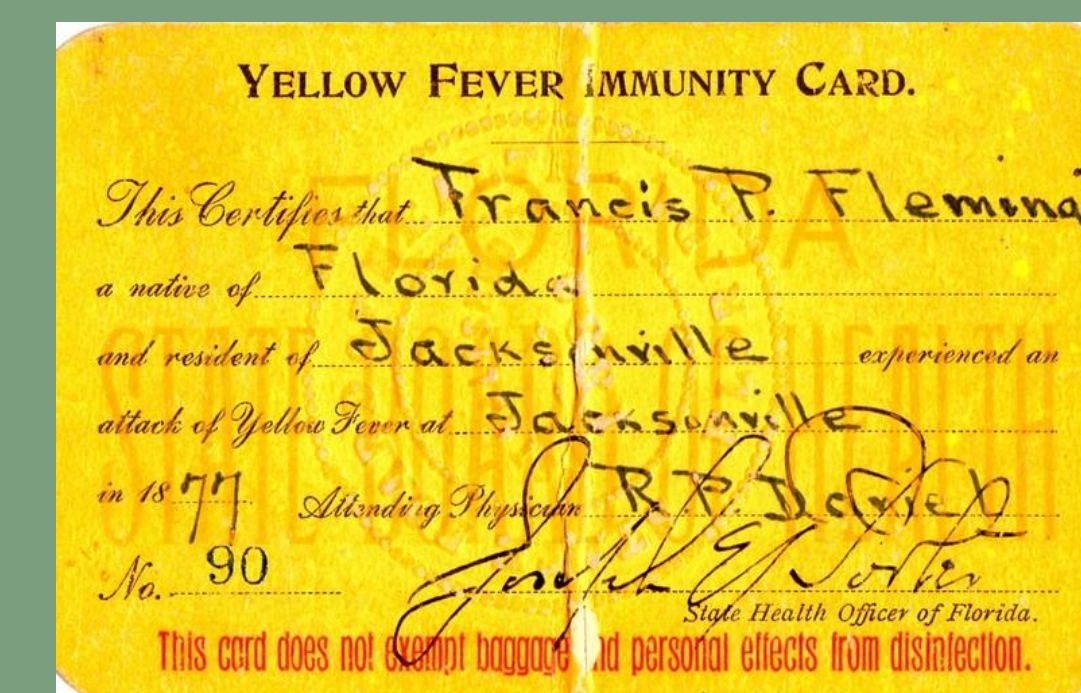 YELLOW FEVER IMMUNITY CARD.
This Certifies that Francis P. Fleming
a native of Florida
and resident of Jacksonville experienced an
attack of Yellow Fever at Jacksonville
in 1877 Attending Physician R. P. Daniel
No. 90 Joseph Y. Porter
State Health Officer of Florida.
This card does not exempt baggage and personal effects from disinfection.
FLORIDA
STATE BOARD OF HEALTH